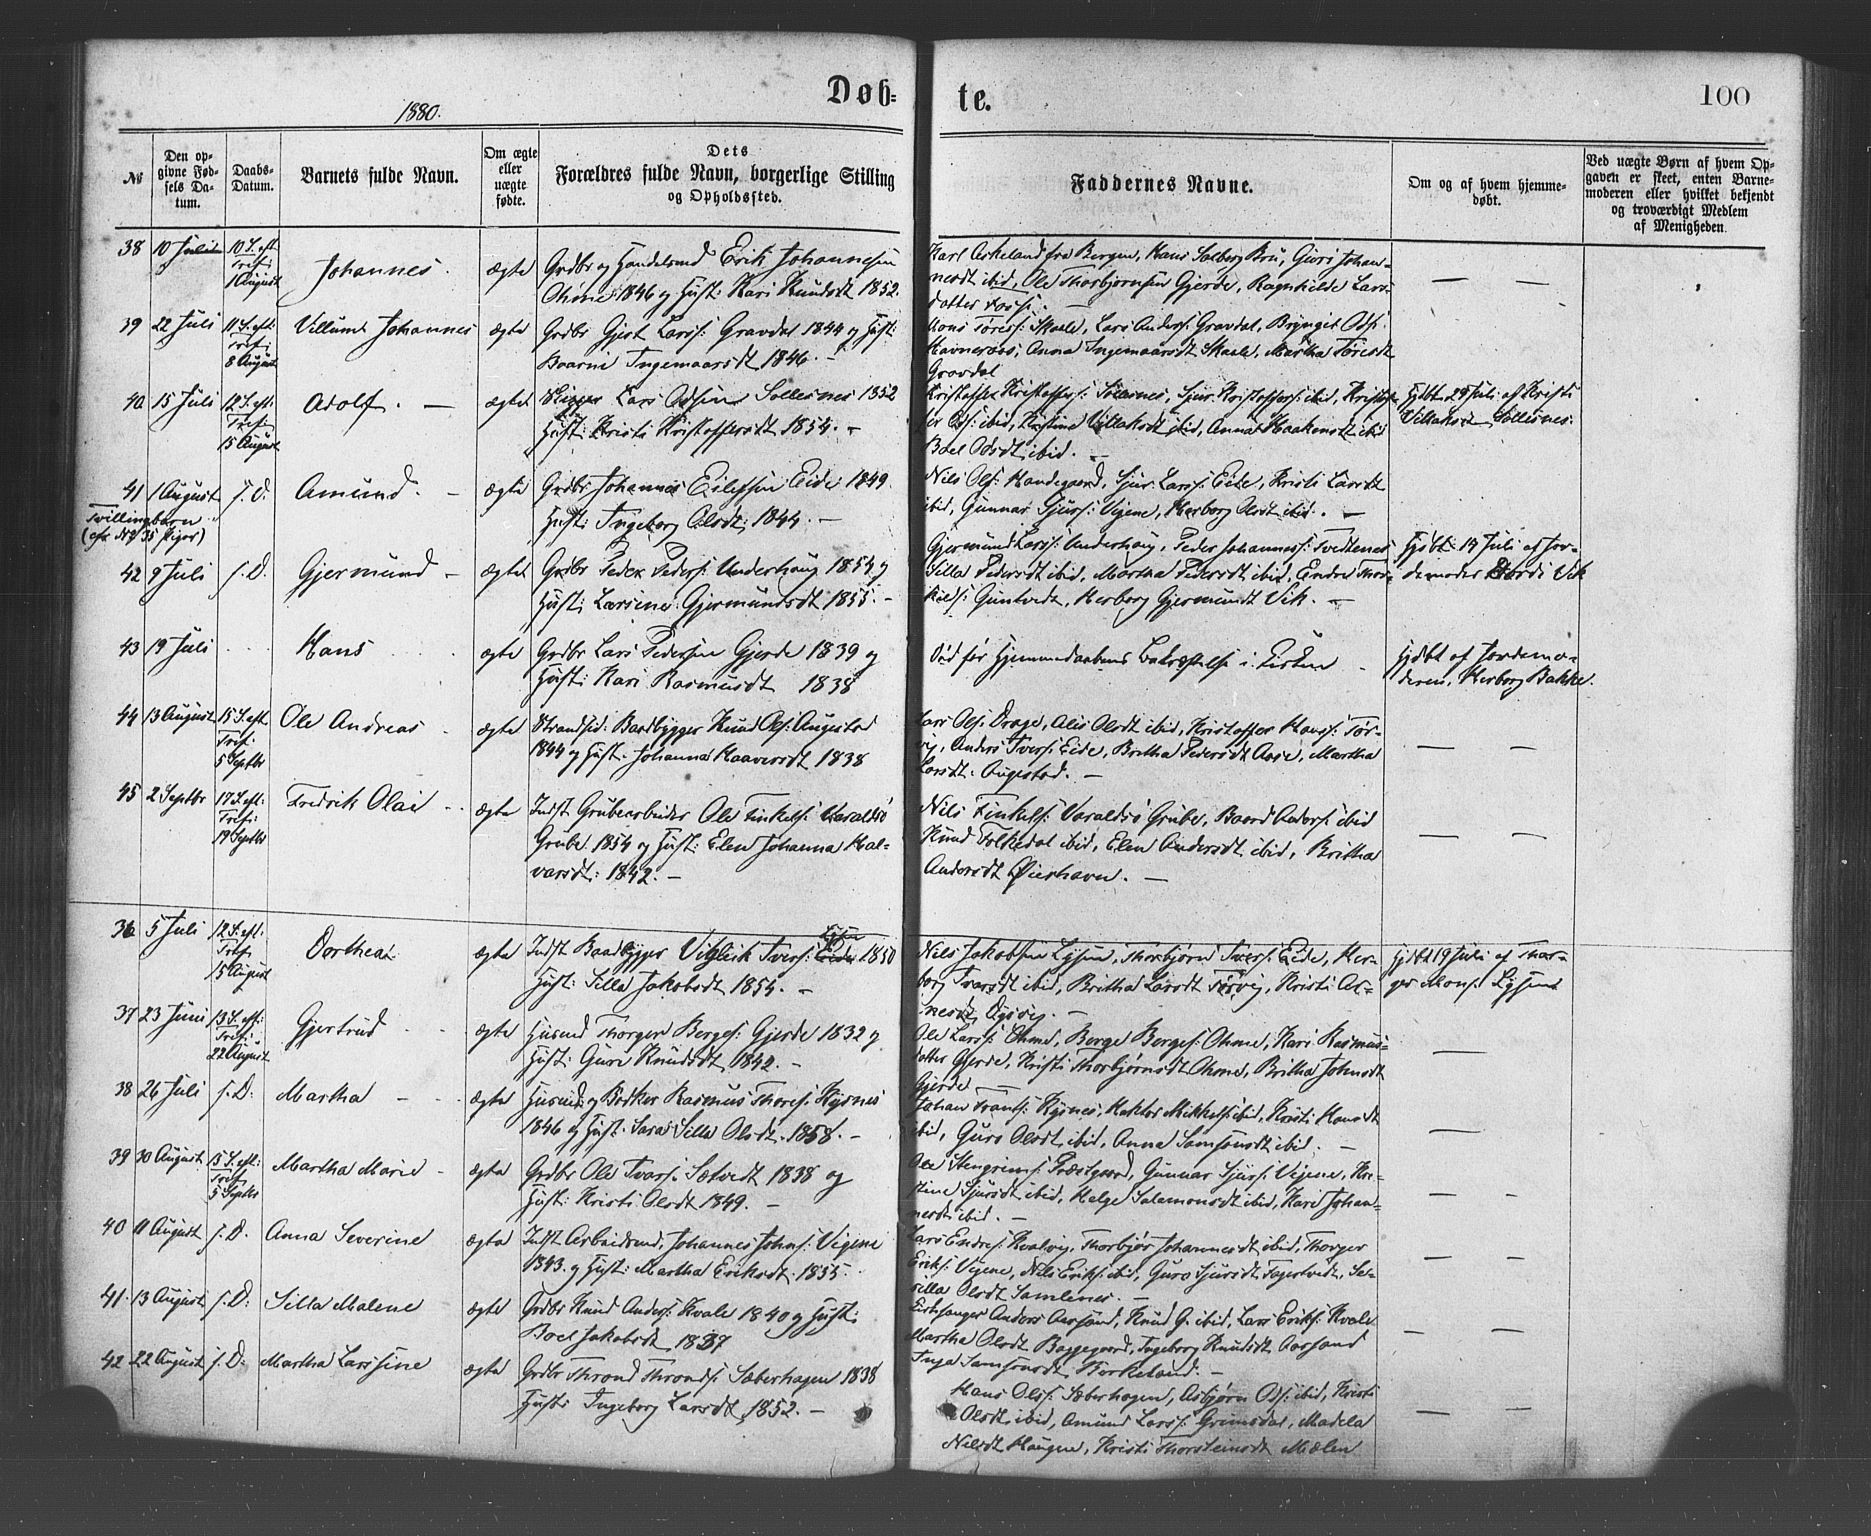 Døb-
te.
100
1880.
No
Den op-
givne Fød-
sels Da-
tum.
Daabs-
Datum.
Barnets fulde Navn.
Om ægte
eller
uægte
fødte.
Dets
Forældres fulde Navn, borgerlige Stilling
og Opholdssted.
Faddernes Navne.
Om og af hvem hjemme-
døbt.
Ved uægte Børn af hvem Op-
gaven er skeet, enten Barne-
moderen eller hvilket bekjendt
og troværdigt Medlem
af Menigheden.
38 10 Juli 10 S. eft. Tref: 1 August Johannes. ægte Grdbr og Handelsmd Erik Johannesen
Ohme 1846 og Hust: Kari Knudsdt 1852.
Karl Askeland fra Bergen, Hans Solberg Bru, Guri Johan-
nesdt ibid, Ole Thorbjørnsen Gjerde, Ragnhilde Lars-
datter
39 22 Juli 11 S. eft. Tref: 8 August Villum Johannes ægte Grdbr Gjert Larss: Gravdal 1844 og Hust:
Ingemaarsdt 1846. —
Mons Skaale, Lars Anders: Gravdal, Brynget Ods:
Havneraas, Anna Ingemaarsdt Skaale, Martha Toresdt
Gravdal
40 15 Juli 12 S. eft. Tref: 15 August Adolf. — ægte Lars Odsen Sollesnes 1852
Hust: Kristi Kristoffersdt 1854. —
Kristoffer Kristoffers: Sollesnes, Sjur Kristoffers: ibid, Kristof-
fer Ods: ibid, Kristine Villaksdt ibid, Anna Haakensdt ibid
Boel Odsdt ibid. —
Hjdbt 29 Juli af Kristi
Villaksdt Sollesnes.
41 1 August s. D. Amund. — ægte Grdbr Johannes Eilefsen Eide 1849.
Tvillingbarn
(cfr. No 35 Piger)
Hust: Ingeborg Olsdt: 1844. —
Nils Ols: Handegaard, Sjur Larss: Eide, Kristi Larsdt
ibid, Gunnar Sjurs: Vigene, Herborg Olsdt ibid. —
42 9 Juli s. D. Gjermund — ægte Grdbr Peder Peders: Underhaug 1854 og
Hust: Larsine Gjermundsdt 1855. —
Gjermund Larss: Underhaug, Peder Johanness: Tvedtenes
Silla Pedersdt ibid, Martha Pedersdt ibid, Endre Thor-
kels: Guntvedt, Herborg Gjermundsdt Vik. —
Hjdbt 14 Juli af Jor-
demoder Vik
43 19 Juli Hans ægte Grdbr Lars Pedersen Gjerde 1839 og
Hust: Kari Rasmusdt 1838
Død før Hjemmedaabens Bekræftelse i Kirken
Hjdbt af Jordemo-
deren, Herborg Bakke.
44 13 August 15 S. eft Tref. 5 Septbr Ole Andreas ægte Strandsid: Baadbygger Knud Ols: Augestad
1844 og Hust. Johanna Haaversdt 1838
Lars Ols: Drage, Alis Olsdt ibid, Kristoffer Hans: Tør-
vig, Anders Ivers: Eide, Britha Pedersdt Aase, Martha
Larsdt: Augestad. —
45 2 Septbr 17 S. eft: Tref: 19 Septbr Fredrik Olai ægte Indst Grubearbeider Ole Finkels: Varaldsø
Grube 1854 og Hust: Elen Johanna Hal-
varsdt: 1842. —
Nils Finkels: Varaldsø Grube, Baard Anders: ibid
Knud Folkedal ibid, Elen Andersdt ibid, Britha
Andersdt Øierhavn. —
36 5 Juli 12 S. eft: Tref. 15 August Dorthea ægte Indst Baadbygger Viglik Ivers: Lysen 1850
Hust: Silla Jakobsdt 1854. —
Nils Jakobsen Lysen, Thorbjørn Ivers: Eide, Her-
borg Ivarsdt ibid, Britha Larsdt Tørvig, Kristi Ar-
nesdt —
Hjdbt 19 Juli af Thor-
ger Mons: Lysen
37 23 Juni 13 S. eft: Tref: 22 August Gjertrud ægte Husmd Thorger Berges: Gjerde 1832 og
Hust: Guri Knudsdt 1842. —
Ole Larss: Ohme, Berge Berges: Ohme, Kari Rasmus-
datter Gjerde, Kristi Thorbjørnsdt Ohme, Britha Johnsdt
Gjerde
38 26 Juli s. D: Martha ægte Husmd: og Bødker Rasmus Thores: Kysnes
1846 og Hust. Sara Silla Olsdt. 1858. —
Johan Frants: Kysnes, Haktor Mikkels: ibid, Kristi Hansdt
ibid, Guro Olsdt ibid, Anna Samsonsdt ibid. —
39 30 August 15 S. eft: Tref. 5 Septbr Martha Marie ægte Grdbr Ole Ivars: Sætvedt 1838 og
Hust: Kristi Olsdt 1849. —
Ole Stengrims: Præstgaard, Gunnar Sjurs: Vigene, Kri-
stine Sjursdt ibid, Helge Salamonsdt ibid, Kari Johan-
nesdt ibid. —
40 11 August s. D. Anna Severine ægte Indst Arbeidsmd, Johannes Johns: Vigene
1843. og Hust: Martha Eriksdt. 1855.
Lars Endres: Kvalvig, Thorbjør Johannesdt ibid, Thorger
Eriks: Vigene, Nils Eriks: ibid, Guro Sjursdt Fagertvedt, Se-
silla Olsdt Samlenes. —
41. 13 August s. D: Silla Malene ægte Grdbr Knud Anders: Kvale 1840 og Hust:
Boel Jakobsdt 1837
Kirksanger Anders Aarsand, Knud G. ibid, Lars Eriks: Kvale
Martha Olsdt Baggegaard, Ingeborg Knudsdt Aarsand
Inga Samsonsdt Birkeland. —
42 22 August s. D: Martha Larssine ægte Grdbr Thrond Thronds: Sæberhagen 1838
Hust: Ingeborg Larsdt 1852. —
Hans Olss: Sæberhagen, Asbjørn Ols: ibid, Kristi
Olsdt ibid, Amund Larss: Grimsdal, Madela
Nilsdt Haugen, Kristi Thorsteinsdt Mælen